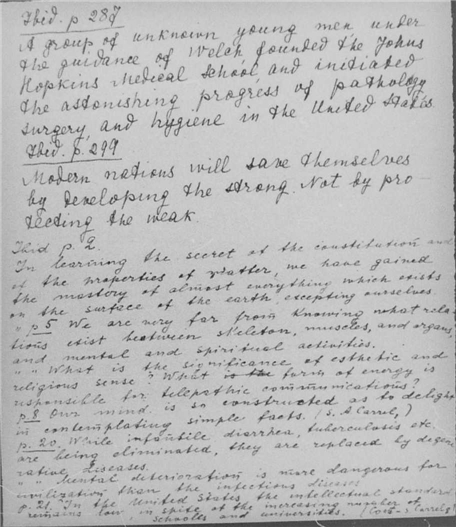 Ibid. p 287
A group of unknown young men under
the guidance of Welch founded the Johns
Hopkins Medical School, and initiated
the astonishing progress of pathology
surgery, and hygiene in the United States
Ibid. p. 299
Modern nations will save themselves
by developing the strong. Not by pro-
tecting the weak.
Ibid p. 2.
In learning the secret of the constitution and
of the properties of matter, we have gained
the mastery of almost everything which exists
on the surface of the earth, excepting ourselves.
" p 5 We are very far from knowing what rela-
tions exist between skeleton, muscles, and organs,
and mental and spiritual activities.
" " What is the significance of esthetic and
religious sense? What is the form of energy is
responsible for telepathic communications?
p. 8 Our mind is so constructed as to delight
in contemplating simple facts. (S. A Carrel,)
p. 20. While infantile diarrhea, tuberculosis etc.
are being eliminated, they are replaced by degene
rative diseases.
" " Mental deterioration is more dangerous for
civilization than the infectious diseases
p. 21. In the United States, the intellectual standard
remains low, in spite of the increasing number of
schools and universities. Carrel,)